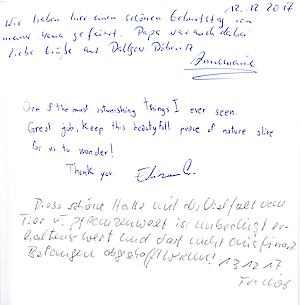 12.12.2017
Wir haben hier einen schönen Geburtstag von
meiner Mama gefeiert. Papa war auch dabei
liebe Grüße aus
Annemarie
One of the most astonishing things I ever seen.
Great job, Keep this beautyfull peace of nature alive
for us to wonder!
Thank you.
Diese schöne Halle mit der Vielfalt von
Tier u. Pflanzenwelt ist unbedingt er-
haltenswert und darf nicht aus finanz.
Belangen abgeschafft werden!
13 12 17